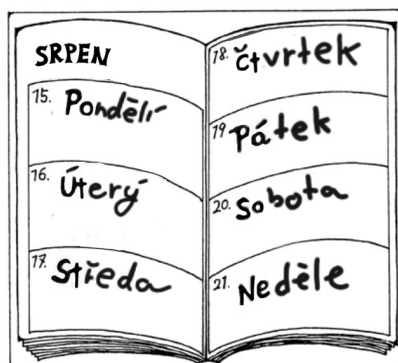 SRPEN
15. Pondělí
16. Úterý
17. Středa
18. Čtvrtek
19 Pátek
20. Sobota
21. Neděle